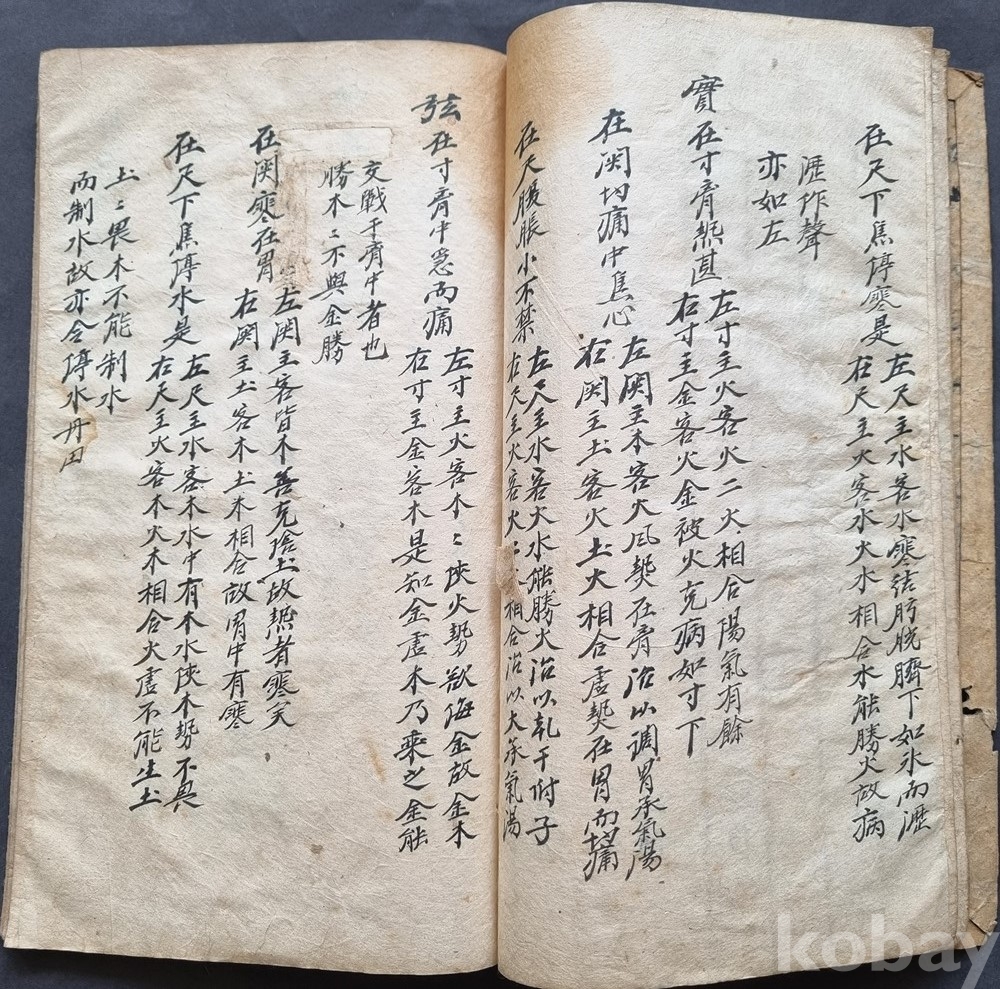 在尺下焦停寒是
左尺主水客水寒结膀胱臍下如氷而瀝
右尺主火客水火水相合水能勝火故病
瀝作聲
亦如左
實在寸膏𤍠甚
左寸主火客火二火相合陽氣有餘
右寸主金客火金被火克病如寸下
在関切痛中焦心
左関主木客火風𤍠在膏治以調胃承氣湯
右関主土客火土火相合虛𤍠在胃而切痛
在尺腹脹小不禁
左尺主水客火水能勝火治以乾干附子
右尺主火客火二火相合治以大承氣湯
弦在寸膏中急而痛
左寸主火客木二俠火勢欲侮金故金木
右寸主金客木是知金虛木乃乘之金能
交戰于膏中者也
勝木二不與金勝
在関寒在胃
左関主客皆木善克脾土故𤍠者寒矣
右関主土客木土木相合故胃中有寒
在尺下焦停水是
左尺主水客木水中有木水俠木勢不畏
右尺主火客木火木相合火虛不能生土
土二畏木不能制水
而制水故亦令停水丹田
kobay